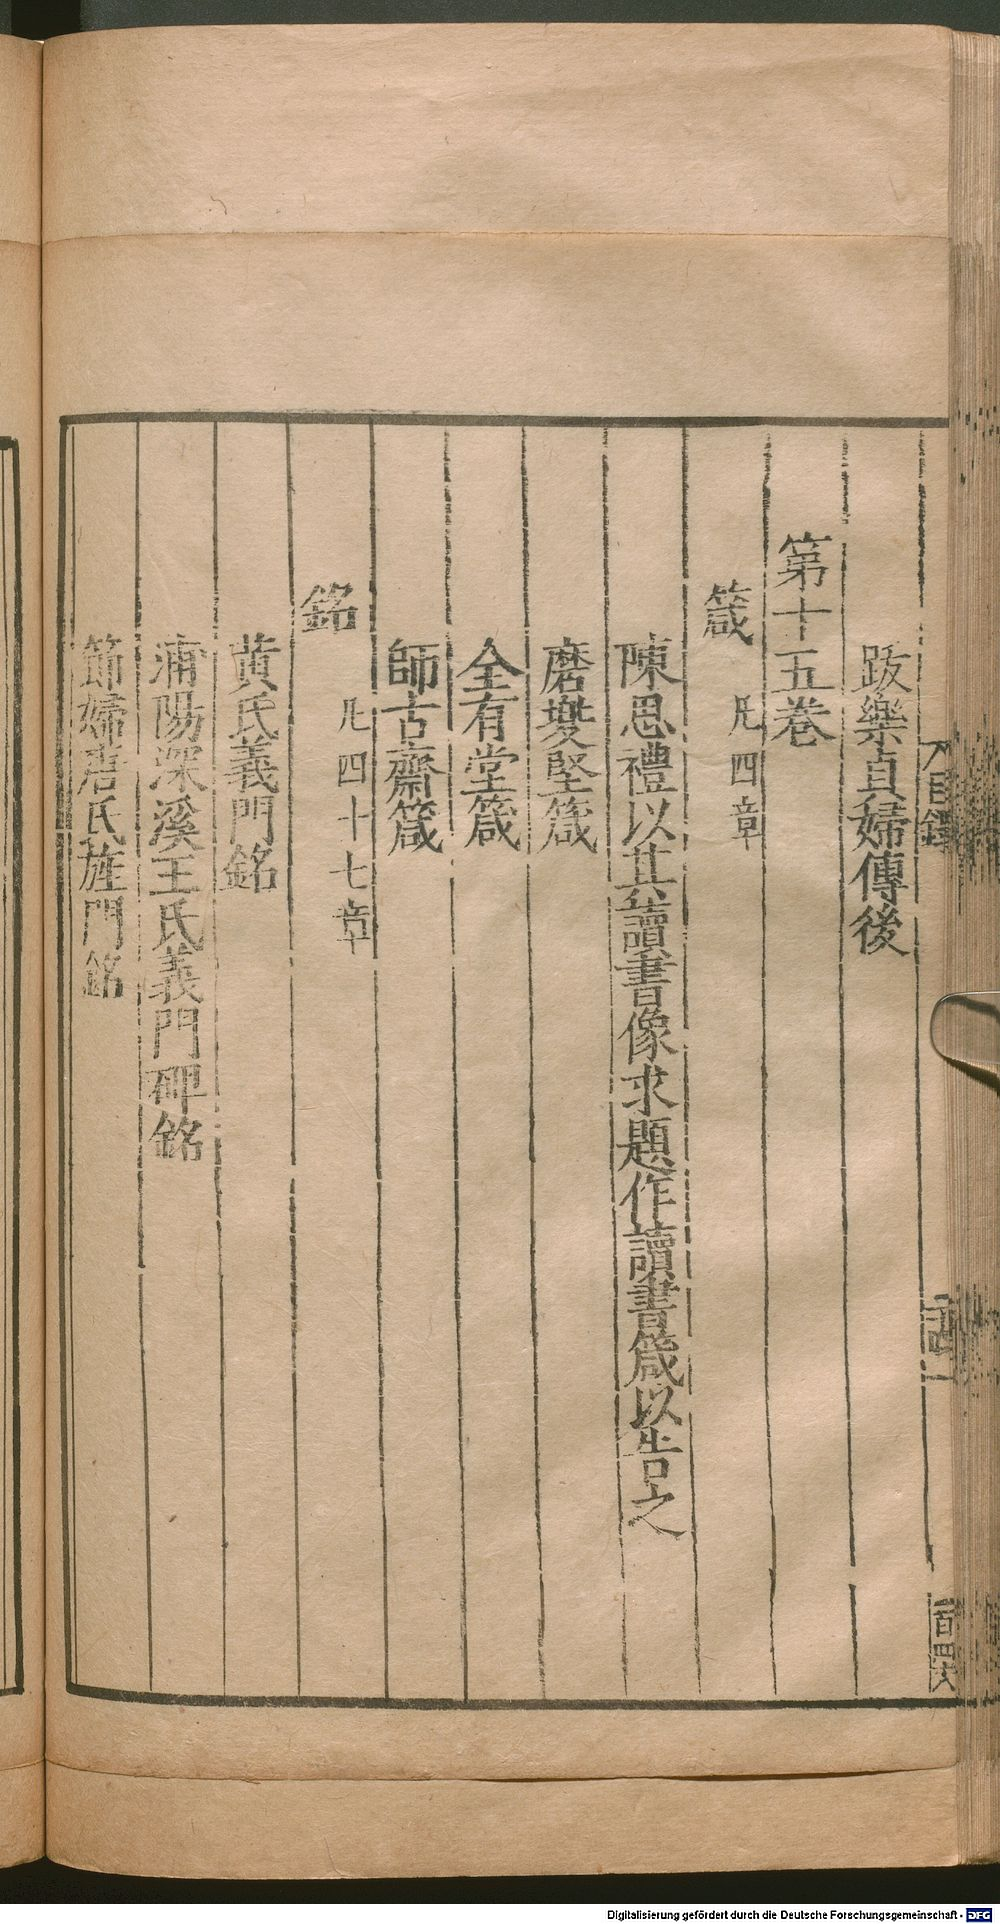 跋樂貞婦傳後
第十五卷
箴
凡四章
陳思禮以其讀書像求題作讀書箴以告之
磨䥫堅箴
全有堂箴
師古齋箴
銘
凡四十七章
黄氏義門銘
浦陽深溪王氏義門碑銘
節婦唐氏旌門銘
Digitalisierung gefördert durch die Deutsche Forschungsgemeinschaft - DFG